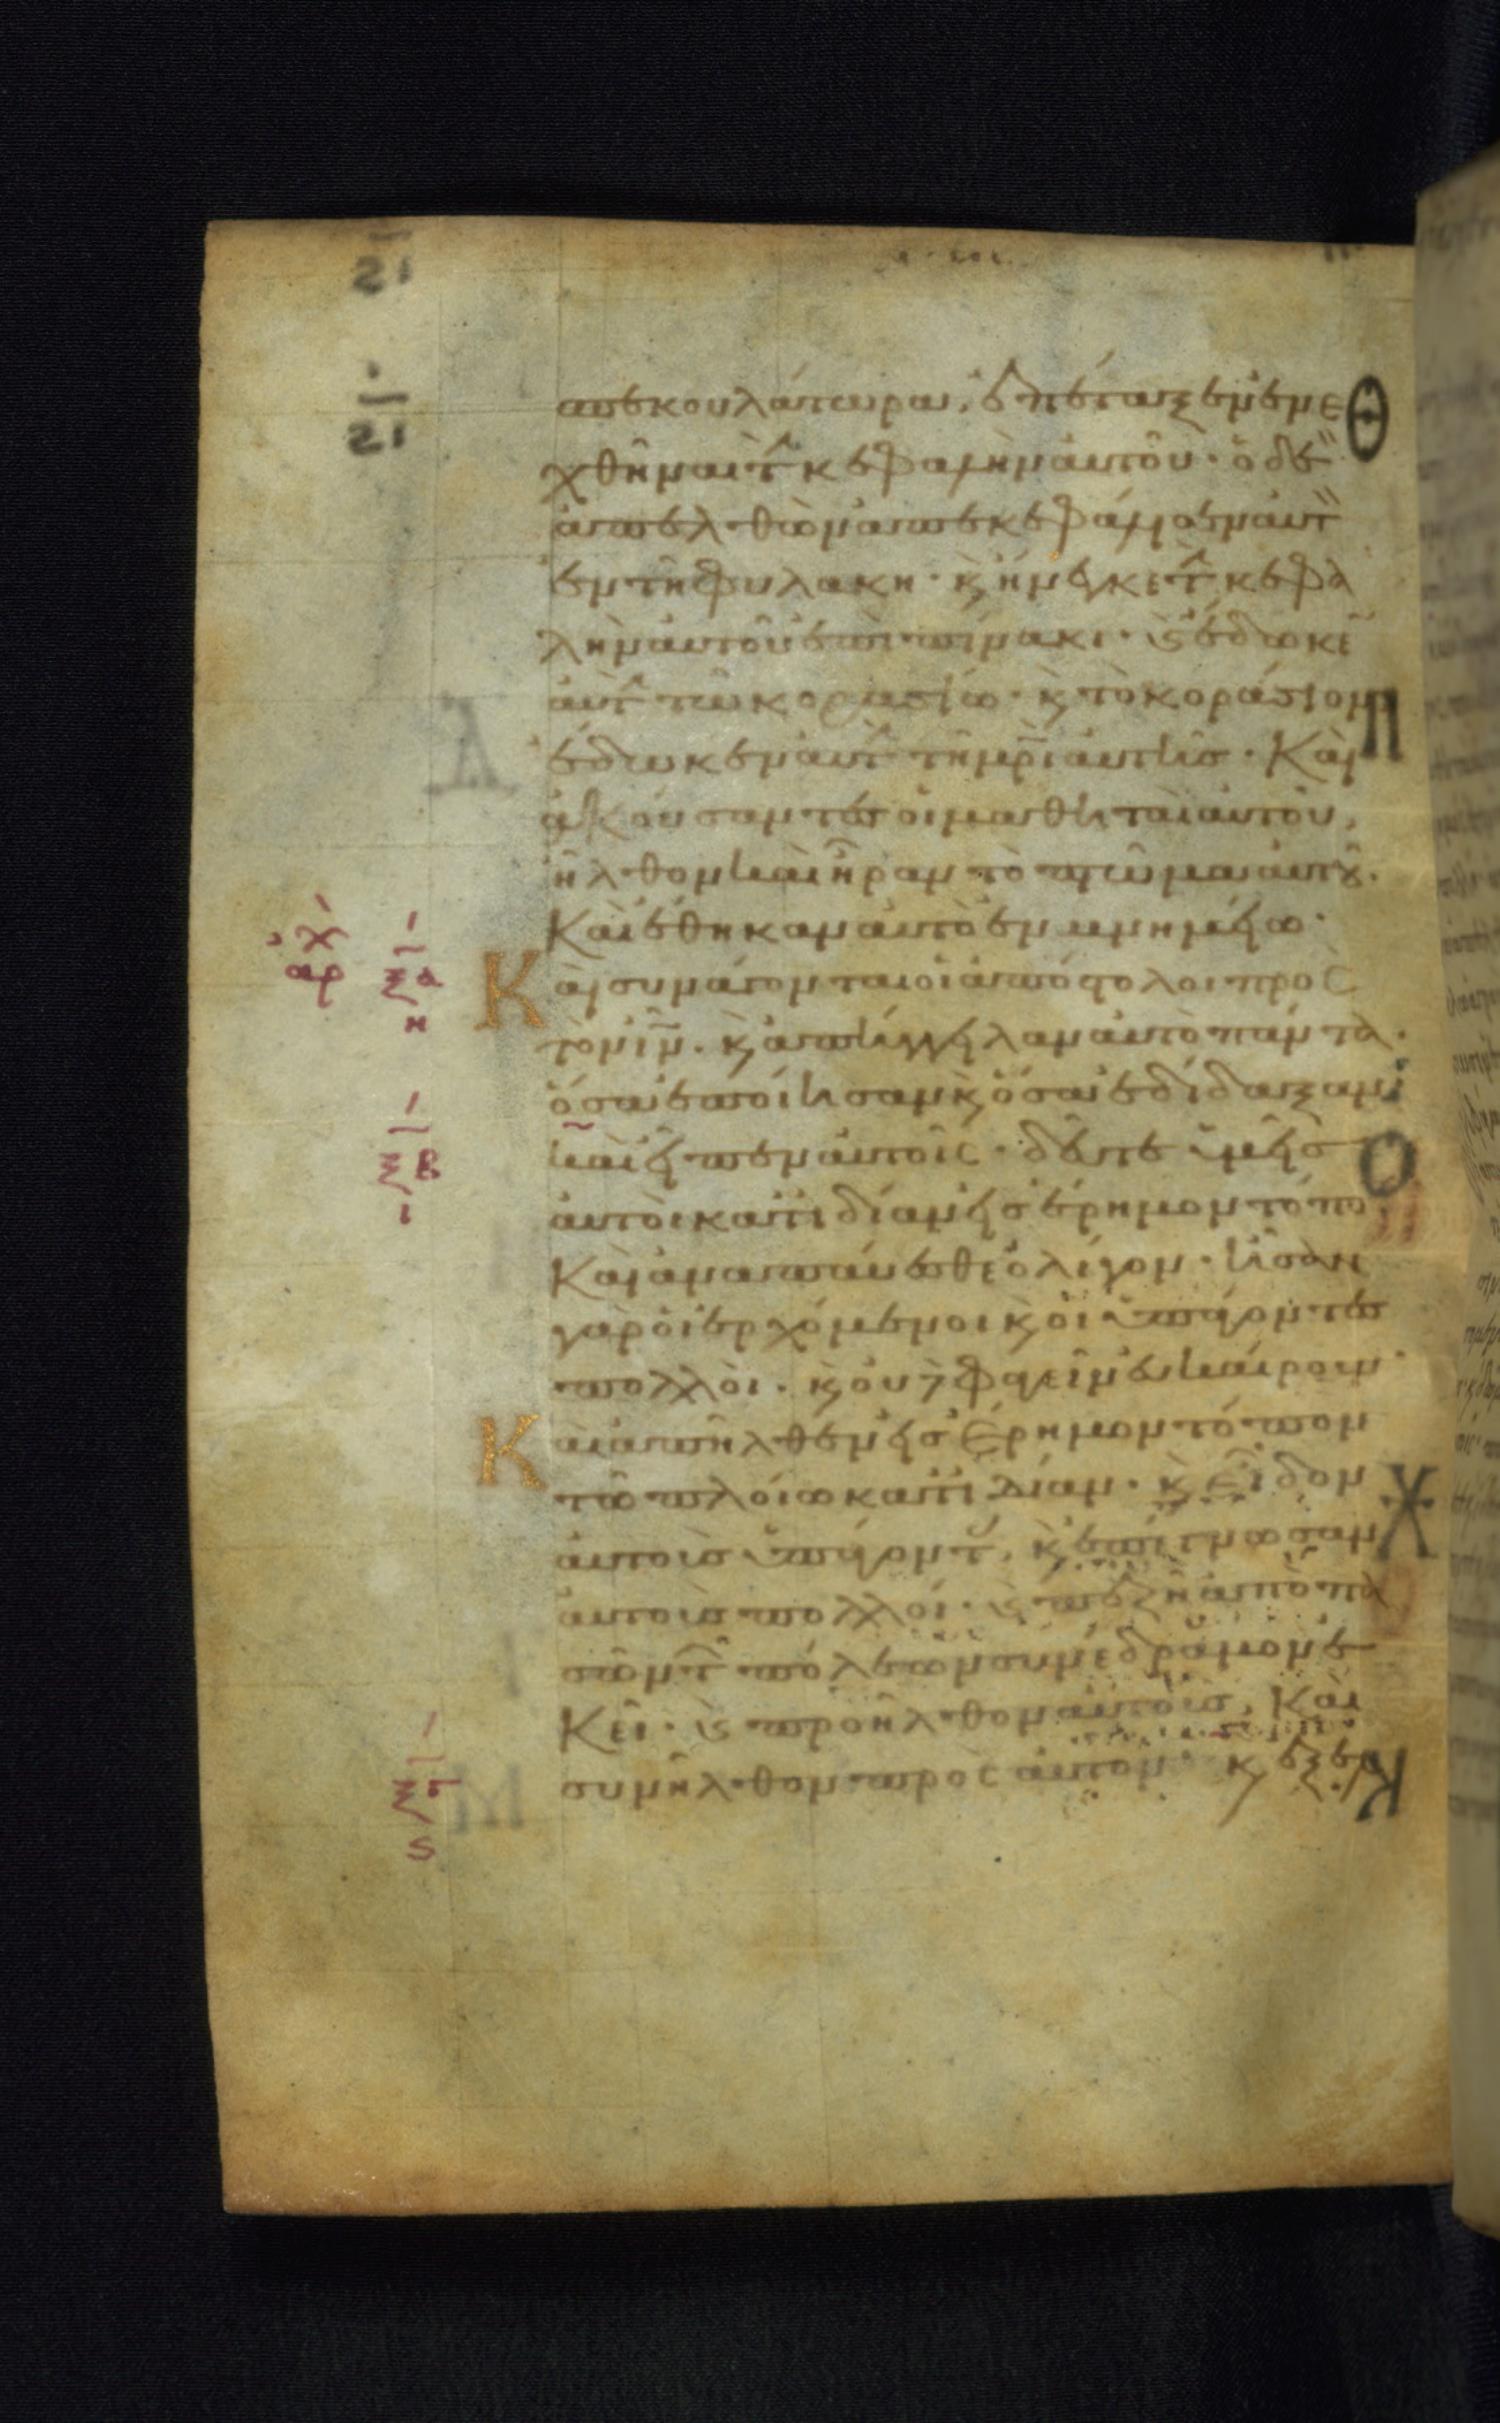 σπεκουλάτωρα, ἐπέταξεν ἐνε
χθῆναι τ(ὴν) κεφαλὴν αὐτοῦ· ὁ δὲ
ἀπελθὼν ἀπεκεφάλισεν αὐτ(ὸν)
ἐν τῆ φυλακῆ· κ(αὶ) ἤνεγκε τ(ὴν) κεφα
λὴν αὐτοῦ ἐπὶ πίνακι· κ(αὶ) ἔδωκε(ν)
αὐτ(ὴν) τῶ κορασίω· κ(αὶ) τὸ κοράσιον
ἔδωκεν αὐτ(ὴν) τῆ μρὶ αὐτῆς· Καὶ
ἀκούσαντες οἱ μαθηταὶ αὐτοῦ,
ἦλθον καὶ ἦραν τὸ πτῶμα αὐτοῦ·
Καὶ ἔθηκαν αὐτὸ ἐν μνημείω·
Καὶ συνάγονται οἱ ἀπόστολοι πρὸς
τὸν ἰν̅· κ(αὶ) ἀπήγγειλαν αὐτῶ πάντα·
ὅσα ἐποίησαν κ(αὶ) ὅσα ἐδίδαξαν·
καὶ εἶπεν αὐτοῖς· δεῦτε ὑμεῖς
αὐτοὶ κατιδίαν εἰς ἔρημον τόπο(ν)·
Καὶ ἀναπαύεσθε ὀλίγον· ἦσαν
γὰρ οἱ ἐρχόμενοι κ(αὶ) οἱ ὑπάγοντες
πολλοί· κ(αὶ) οὐδὲ φαγεῖν εὐκαίρουν·
Καὶ ἀπῆλθεν εἰς ἔρημον τόπον
τῶ πλοίω κατιδίαν· κ(αὶ) εἶδον
αὐτοὺς ὑπάγοντ(ας), κ(αὶ) ἐπέγνωσαν
αὐτοὺς πολλοί· κ(αὶ) πεζῆ ἀπὸ πα
σῶν τ(ῶν) πόλεων συνέδραμον ἐ
Κεῖ· κ(αὶ) προῆλθον αὐτοὺς, Καὶ
συνῆλθον πρὸς αὐτόν· κ(αὶ) ἐξελ
ἀρχ
ξα
η
ξβ
ι
ξγ
ς